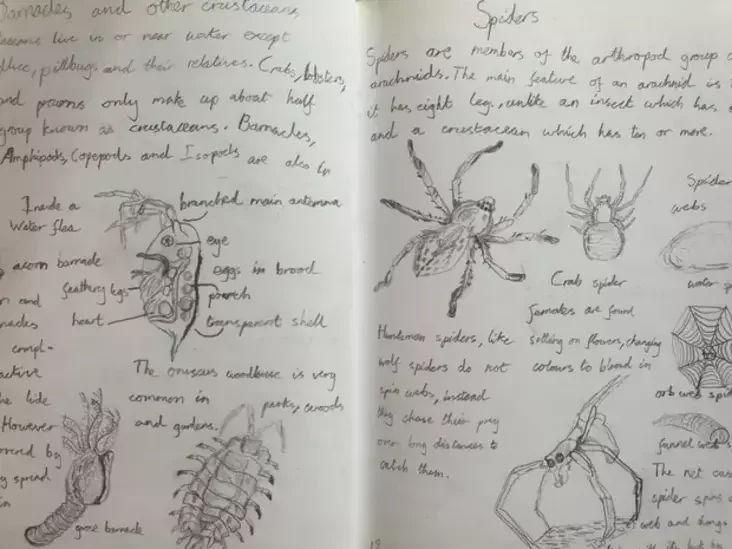 Barnacles and other crustaceans
live in or near water except
pillbugs and their relatives. Crabs, lobsters,
and prawns only make up about half
group known as crustaceans. Barnacles,
Amphipods, Copepods and Isopods are also in
Inside a
Water flea
branched main antenna
eye
eggs in brood
pouch
transparent shell
feathery legs
heart
acorn barnacle
and
compl-
active
tide
However
by
spend
in
The onuscus woodlouse is very
common in parks, woods
and gardens.
goose barnacle
Spiders
Spiders are members of the arthropod group
arachnids. The main feature of an arachnid is
it has eight leg, unlike an insect which has
and a crustacean which has ten or more.
Spider
webs
Crab spider
females are found
sitting on flowers, changing
colours to blend in
Huntsman spiders, like
wolf spiders do not
spin webs, instead
they chase their prey
over long distances to
catch them.
water
orb web spid
funnel web
The net cas
spider spins
web and
18